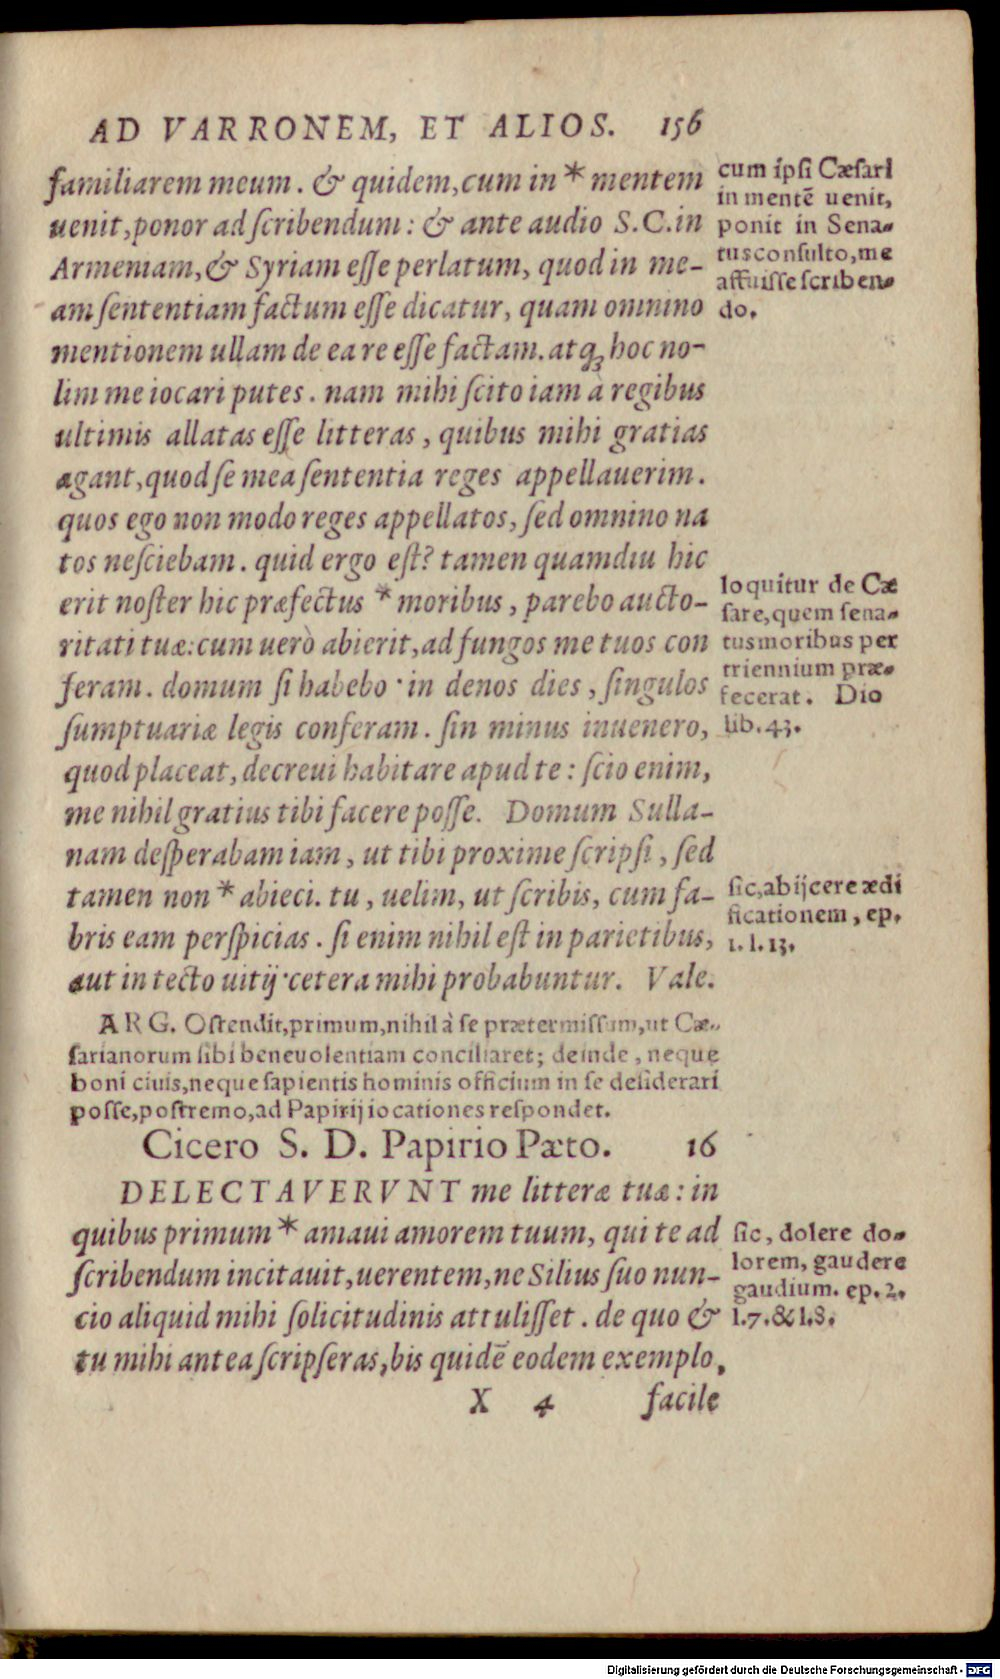 AD VARRONEM, ET ALIOS. 156
familiarem meum. & quidem, cum in * mentem
uenit, ponor ad ſcribendum: & ante audio S.C. in
Armeniam, & Syriam eſſe perlatum, quod in me-
am ſententiam factum eſſe dicatur, quam omnino
mentionem ullam de ea re eſſe factam. atq; hoc no-
lim me iocari putes. nam mihi ſcito iam à regibus
ultimis allatas eſſe litteras, quibus mihi gratias
agant, quod ſe mea ſententia reges appellauerim.
quos ego non modo reges appellatos, ſed omnino na
tos neſciebam. quid ergo eſt? tamen quamdiu hic
erit noſter hic præfectus * moribus, parebo aucto-
ritati tuæ: cum uerò abierit, ad fungos me tuos con
feram. domum ſi habebo· in denos dies, ſingulos
ſumptuariæ legis conferam. ſin minus inuenero,
quod placeat, decreui habitare apud te: ſcio enim,
me nihil gratius tibi facere poſſe. Domum Sulla-
nam deſperabam iam, ut tibi proxime ſcripſi, ſed
tamen non * abieci. tu, uelim, ut ſcribis, cum fa-
bris eam perſpicias. ſi enim nihil eſt in parietibus,
aut in tecto uitij· cetera mihi probabuntur. Vale.
cum ipſi Cæſari
in mentē uenit,
ponit in Sena-
tusconſulto, me
affuiſſe ſcriben-
do.
loquitur de Cæ
ſare, quem ſena-
tus moribus per
triennium præ-
fecerat. Dio
lib. 43.
ſic, abijcere ædi
ficationem, ep.
1. l. 13.
ARG. Oſtendit, primum, nihil à ſe prætermiſſum, ut Cæ-
ſarianorum ſibi beneuolentiam conciliaret; deinde, neque
boni ciuis, neque ſapientis hominis officium in ſe deſiderari
poſſe, poſtremo, ad Papirij iocationes reſpondet.
Cicero S. D. Papirio Pæto. 16
DELECTAVERVNT me litteræ tuæ: in
quibus primum * amaui amorem tuum, qui te ad
ſcribendum incitauit, uerentem, ne Silius ſuo nun-
cio aliquid mihi ſolicitudinis attuliſſet. de quo &
tu mihi antea ſcripſeras, bis quidē eodem exemplo,
ſic, dolere do-
lorem, gaudere
gaudium. ep. 2.
l. 7. & l. 8.
X 4 facile
Digitalisierung gefördert durch die Deutsche Forschungsgemeinschaft - DFG